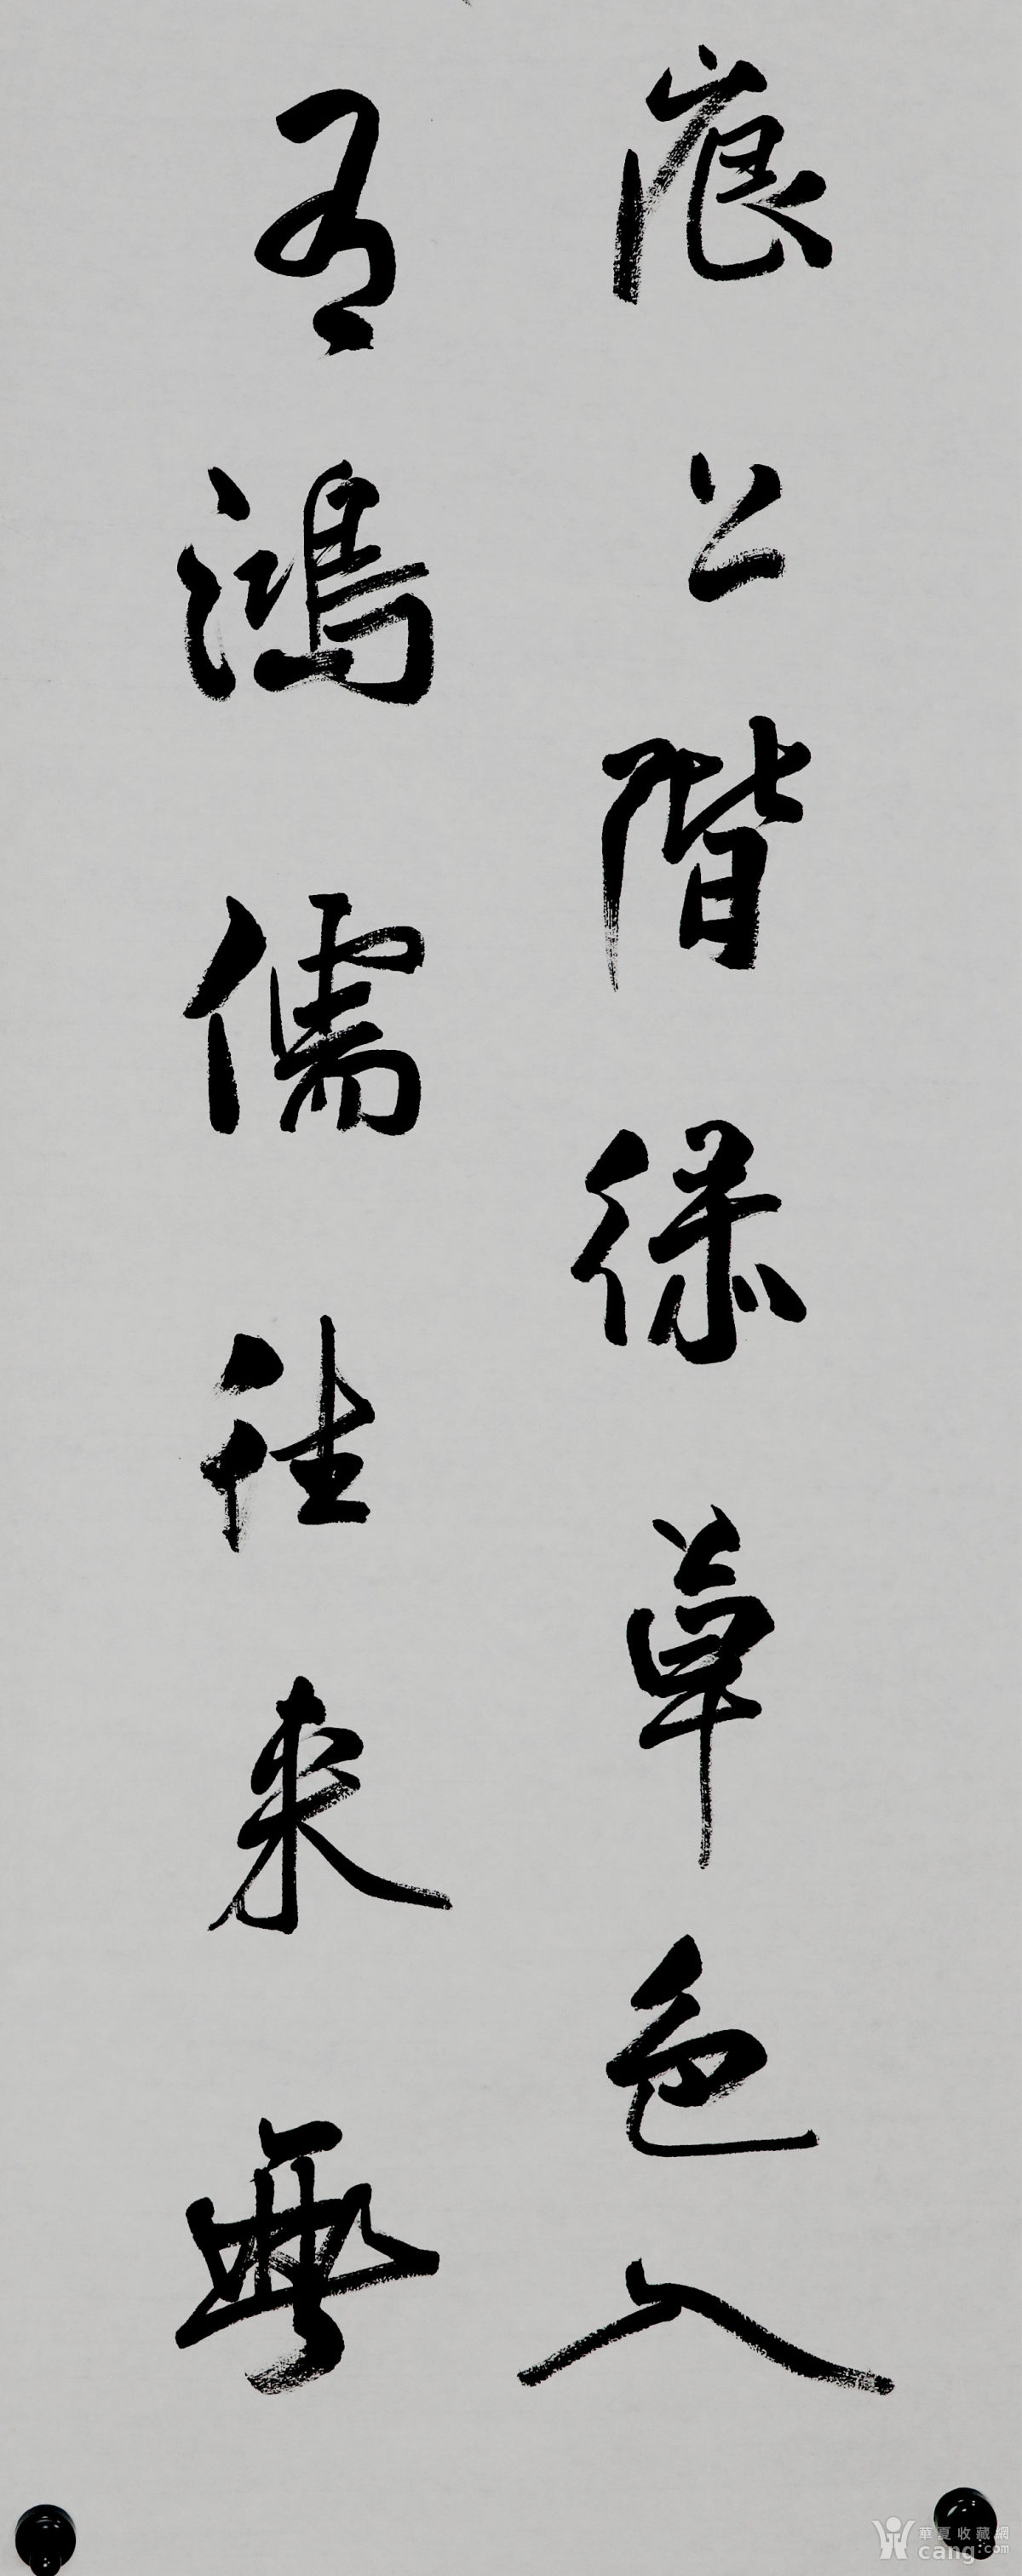 痕上階緑草色入
有鴻儒往来無
華夏收藏網
cang.com